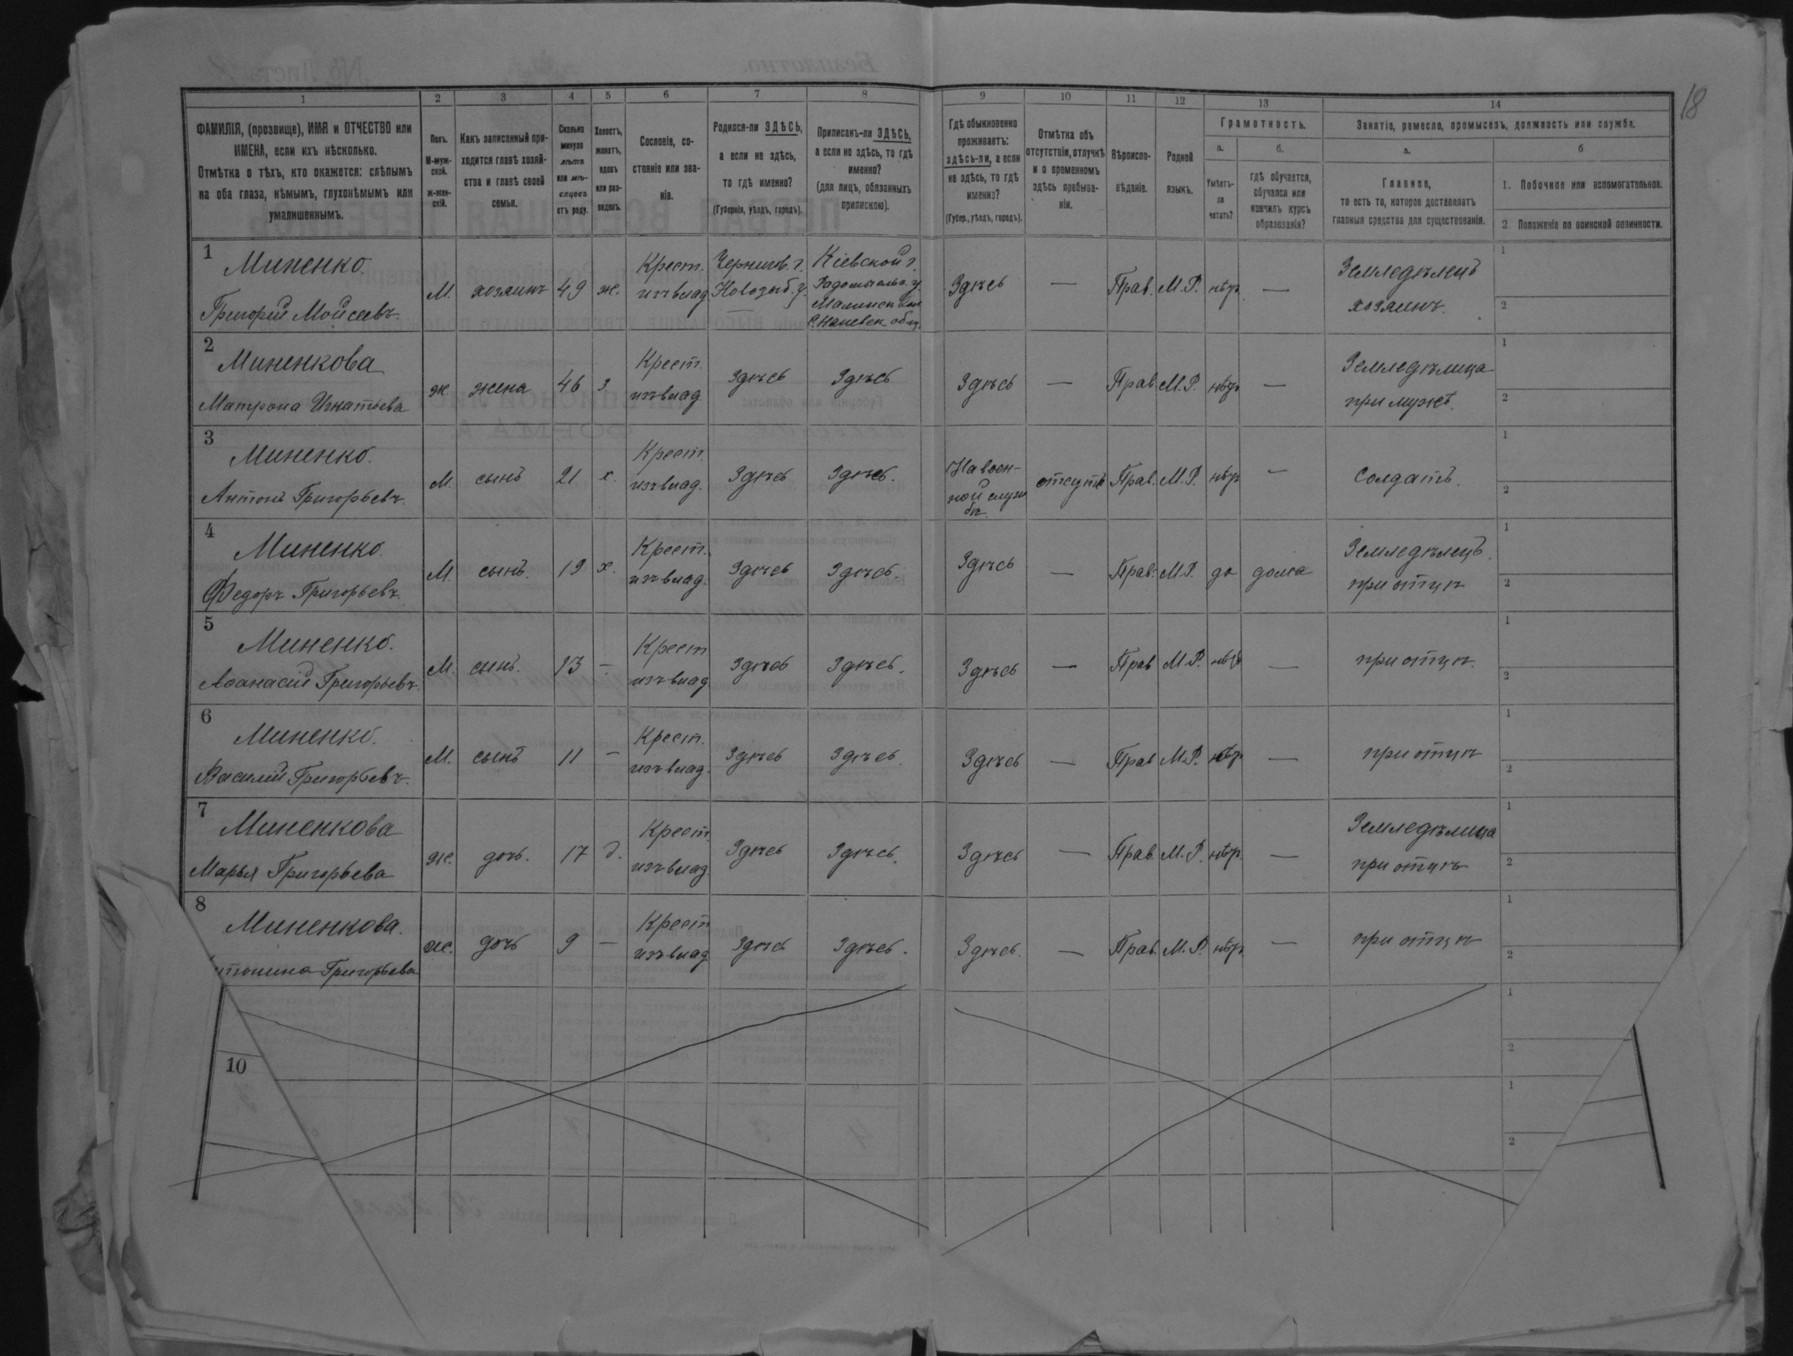 18
1 2 3 4 5 6 7 8 9 10 11 12 13 14
ФАМИЛІЯ, (прозвище), ИМЯ и ОТЧЕСТВО или
ИМЕНА, если ихъ нѣсколько.
Отмѣтка о тѣхъ, кто окажется: слѣпымъ
на оба глаза, нѣмымъ, глухонѣмымъ или
умалишеннымъ.
Полъ.
М-муж-
ской.
Ж-жен-
скій.
Какъ записанный при-
ходится главѣ хозяй-
ства и главѣ своей
семьи.
Сколько
минуло
лѣтъ
или мѣ-
сяцевъ
отъ роду.
Холостъ,
женатъ,
вдовъ
или раз-
веденъ.
Сословіе, со-
стояніе или зва-
ніе.
Родился-ли ЗДѢСЬ,
а если не здѣсь,
то гдѣ именно?
(Губернія, уѣздъ, городъ).
Приписанъ-ли ЗДѢСЬ,
а если не здѣсь, то гдѣ
именно?
(для лицъ, обязанныхъ
припискою).
Гдѣ обыкновенно
проживаетъ:
здѣсь-ли, а если
не здѣсь, то гдѣ
именно?
(Губер., уѣздъ, городъ).
Отмѣтка объ
отсутствіи, отлучкѣ
и о временномъ
здѣсь пребыва-
ніи.
Вѣроиспо-
вѣданіе.
Родной
языкъ.
Грамотность.
а.
Умѣетъ-
ли
читать?
б.
гдѣ обучается,
обучался или
кончилъ курсъ
образованія?
Занятіе, ремесло, промыселъ, должность или служба.
а.
Главное,
то есть то, которое доставляетъ
главныя средства для существованія.
б
1. Побочное или вспомогательное.
2 Положеніе по воинской повинности.
1 Миненко.
Григорій Мойсеевъ.
М. хозяинъ 49 ж.
Крест.
изъ влад.
Чернигов. г.
Новозыб. у.
Кіевской г.
Радомысльс. у
Малинск. вол.
Здѣсь — Прав. М.Р. нѣтъ —
Земледѣлецъ
хозяинъ.
1
2
2 Миненкова
Матрона Игнатьева
ж жена 46 з.
Крест.
изъ влад.
Здѣсь Здѣсь Здѣсь — Прав. М.Р. нѣтъ —
Земледѣлица
при мужѣ.
1
2
3 Миненко.
Антонъ Григорьевъ
М. сынъ 21 х.
Крест.
изъ влад.
Здѣсь Здѣсь.
На воен-
ной служ
бѣ.
отсутв Прав. М.Р. нѣтъ —
солдатъ.
1
2
4 Миненко.
Федоръ Григорьевъ
М. сынъ. 19 х.
Крест.
изъ влад.
Здѣсь Здѣсь. Здѣсь — Прав. М.Р. да дома
Земледѣлецъ.
при отцѣ
1
2
5 Миненко.
Аѳанасій Григорьевъ.
М. сынъ. 13 —
Крест
изъ влад
Здѣсь Здѣсь. Здѣсь — Прав М.Р. нѣтъ —
при отцѣ.
1
2
6 Миненко.
Василій Григорьевъ.
М. сынъ 11 —
Крест.
изъ влад.
Здѣсь Здѣсь. Здѣсь — Прав М.Р. нѣтъ —
при отцѣ
1
2
7 Миненкова
Марья Григорьева
ж. дочь. 17 д.
Крест.
изъ влад
Здѣсь Здѣсь. Здѣсь — Прав. М.Р. нѣтъ. —
Земледѣлица
при отцѣ
1
2
8 Миненкова.
Григорьева
ж. дочь 9 —
Крест
изъ влад
Здѣсь Здѣсь. Здѣсь. — Прав. М.Р. нѣтъ —
при отцѣ
1
2
1
2
10
1
2